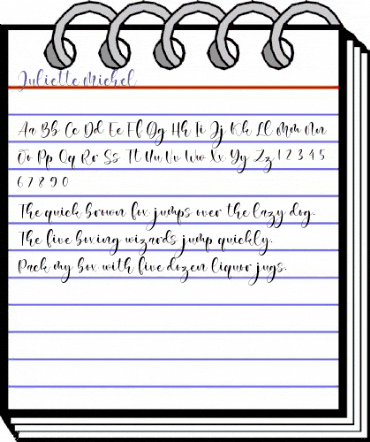 Juliette Michel
Aa Bb Cc Dd Ee Ff Gg Hh Ii Jj Kk Ll Mm Nn
Oo Pp Qq Rr Ss Tt Uu Vv Ww Xx Yy Zz 1 2 3 4 5
6 7 8 9 0
The quick brown fox jumps over the lazy dog.
The five boxing wizards jump quickly.
Pack my box with five dozen liquor jugs.